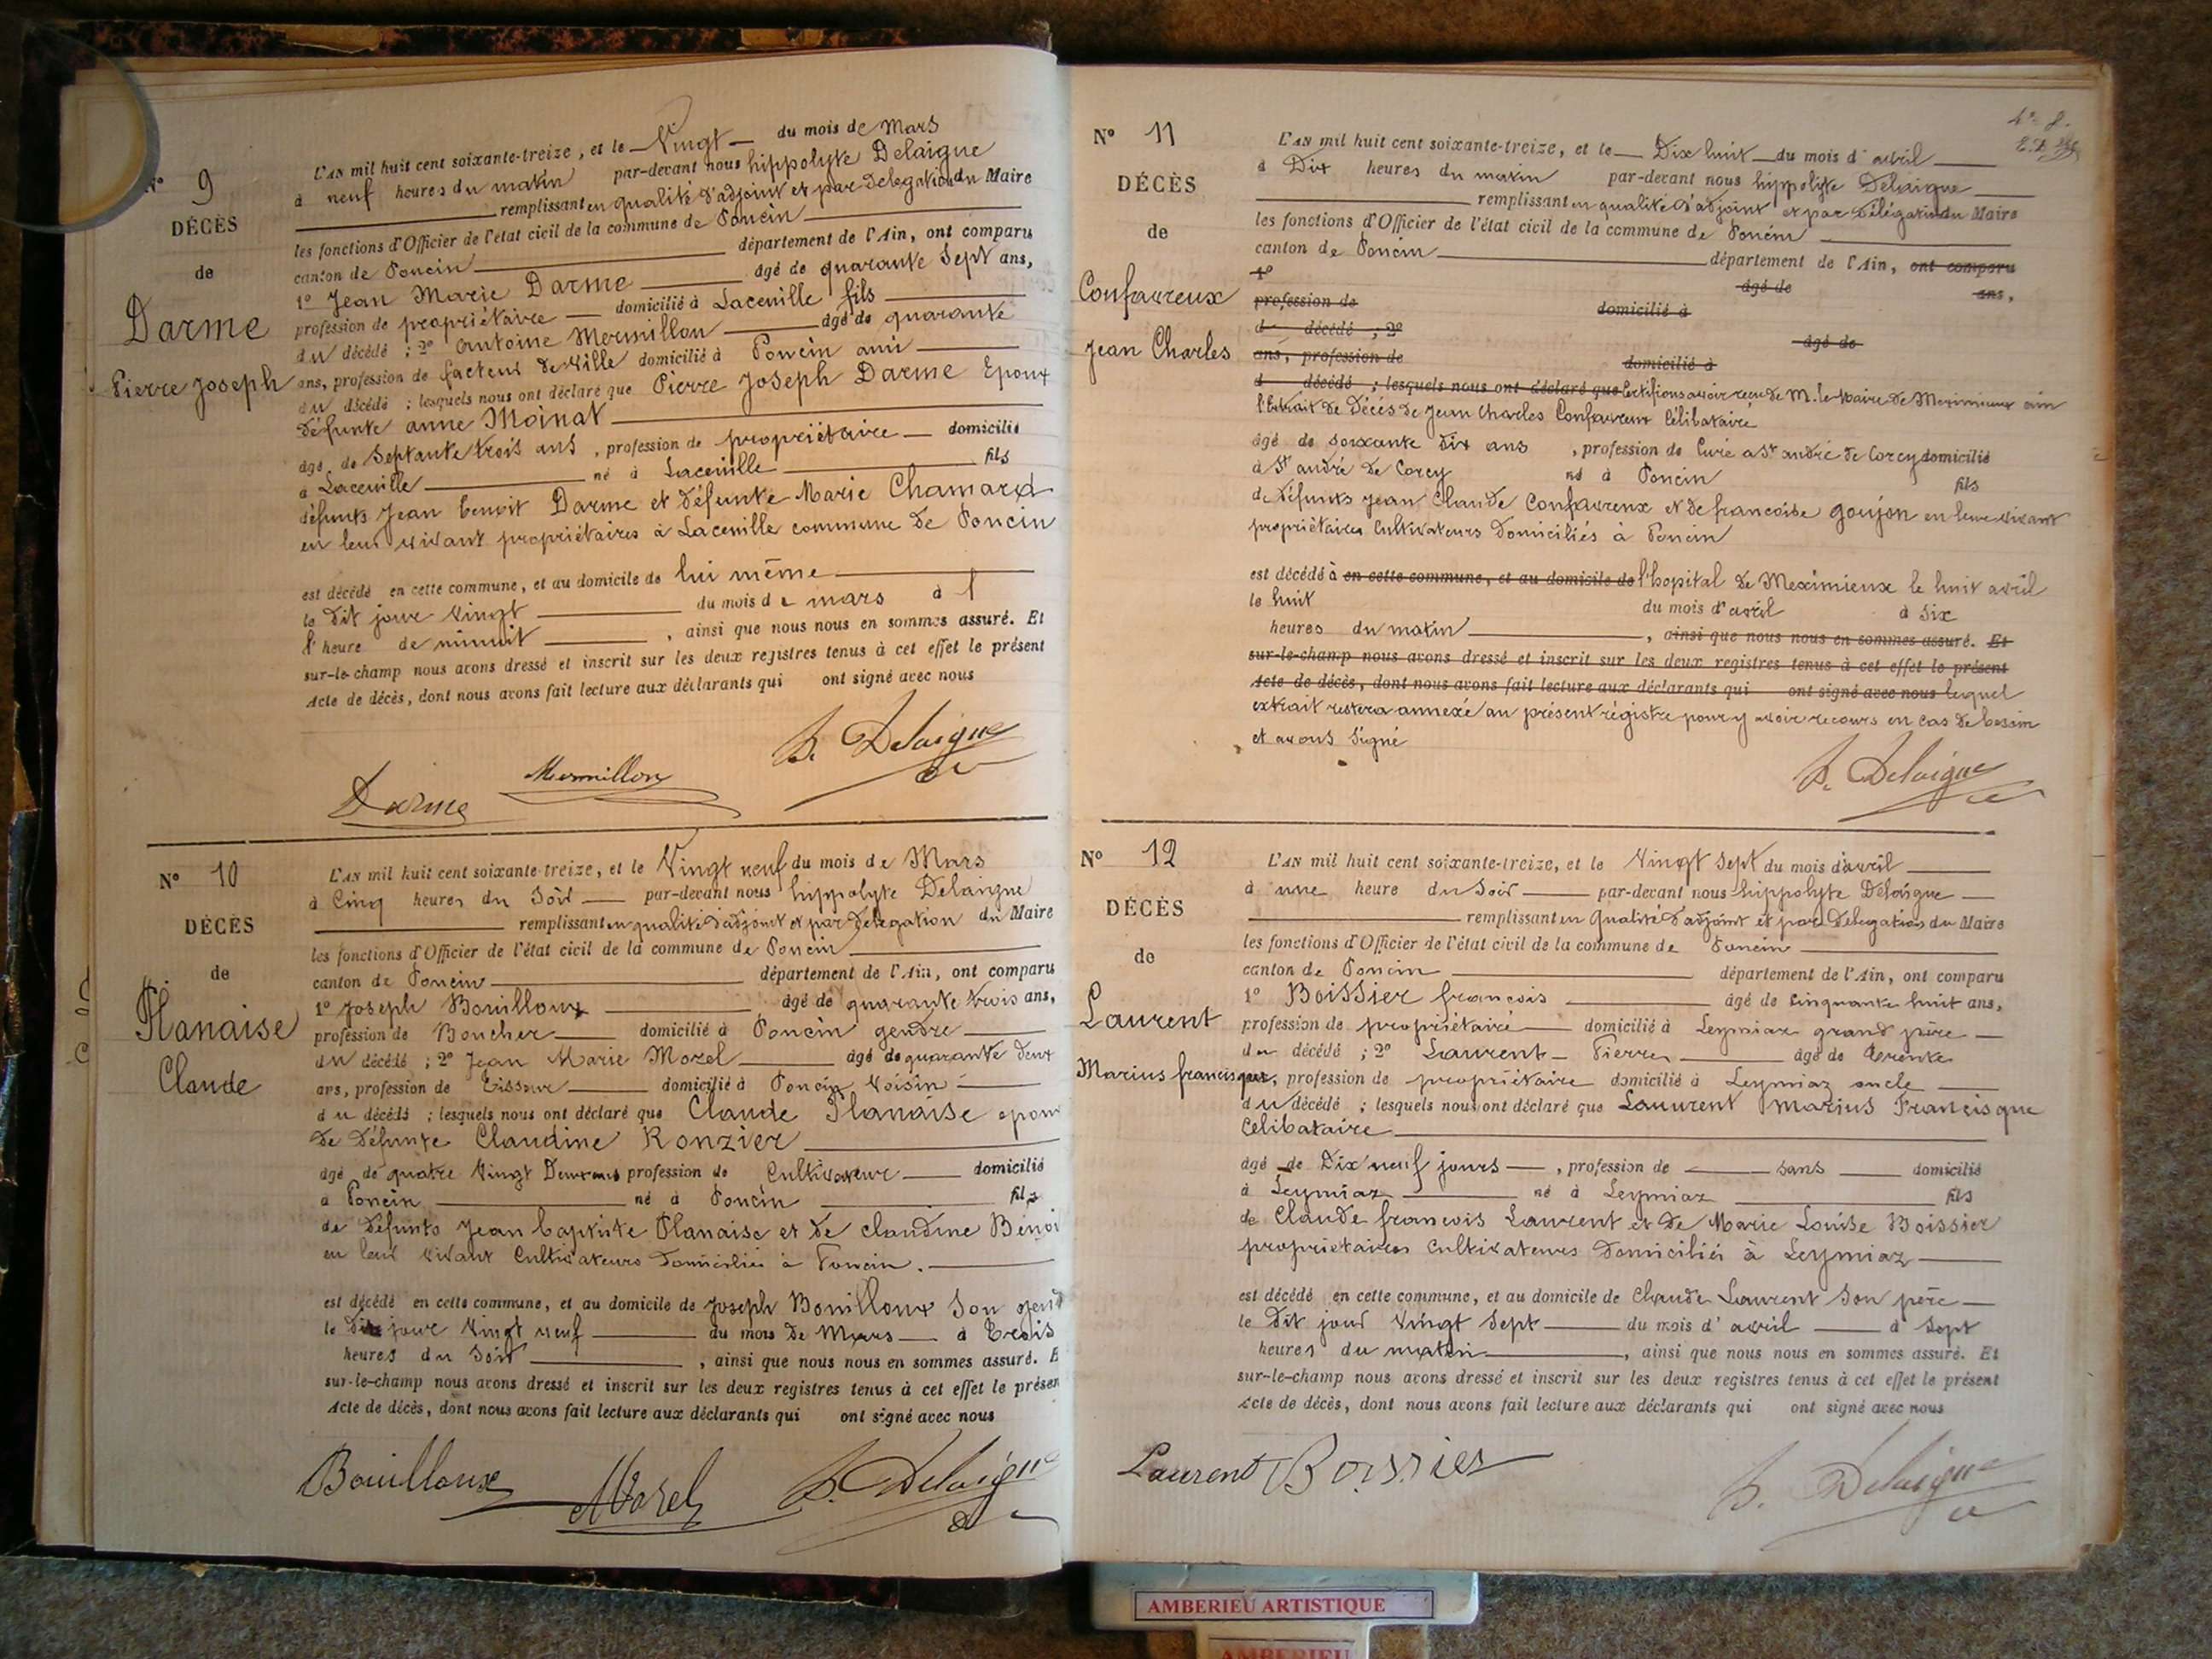 N° 9
DÉCÈS
de
Darme
Pierre Joseph
L'AN mil huit cent soixante-treize, et le Vingt du mois de Mars
à neuf heures du matin par-devant nous hippolyte Delaigue
remplissant en qualité d'adjoint et par Delegation du Maire
les fonctions d'Officier de l'état civil de la commune de Poncin
canton de Poncin département de l'Ain, ont comparu
1° Jean Marie Darme âgé de quarante Sept ans,
profession de propriétaire domicilié à Laceuille fils
du décédé ; 2° Antoine Mermillon âgé de quarante
ans, profession de facteur de ville domicilié à Poncin ami
du décédé ; lesquels nous ont déclaré que Pierre Joseph Darme Epoux
défunte anne Moinat
âgé de Septante trois ans, profession de propriétaire domicilié
à Laceuille né à Laceuille fils
défunts Jean benoit Darme et défunte Marie Chamard
en leur vivant propriétaires à Laceuille commune de Poncin
est décédé en cette commune, et au domicile de lui même
le dit jour Vingt du mois de mars à 1
l'heure de minuit, ainsi que nous nous en sommes assuré. Et
sur-le-champ nous avons dressé et inscrit sur les deux registres tenus à cet effet le présent
Acte de décès, dont nous avons fait lecture aux déclarants qui ont signé avec nous
Darme Mermillon h. Delaigue
N° 10
DÉCÈS
de
Planaise
Claude
L'AN mil huit cent soixante-treize, et le Vingt neuf du mois de Mars
à Cinq heures du Soir par-devant nous hippolyte Delaigue
remplissant en qualité d'adjoint et par Delegation du Maire
les fonctions d'Officier de l'état civil de la commune de Poncin
canton de Poncin département de l'Ain, ont comparu
1° Joseph Bouilloux âgé de quarante trois ans,
profession de Boucher domicilié à Poncin gendre
du décédé ; 2° Jean Marie Morel âgé de quarante deux
ans, profession de Tisseur domicilié à Poncin Voisin
du décédé ; lesquels nous ont déclaré que Claude Planaise epou
de défunte Claudine Ronzier
âgé de quatre Vingt Deux ans profession de Cultivateur domicilié
à Poncin né à Poncin fils
de défunts Jean baptiste Planaise et de claudine Benoi
en leur vivant Cultivateurs domiciliés à Poncin.
est décédé en cette commune, et au domicile de Joseph Bouilloux Son gend
le dit jour Vingt neuf du mois de Mars à Trois
heures du Soir, ainsi que nous nous en sommes assuré. E
sur-le-champ nous avons dressé et inscrit sur les deux registres tenus à cet effet le présen
Acte de décès, dont nous avons fait lecture aux déclarants qui ont signé avec nous
Bouilloux Morel h. Delaigue
N° 11
DÉCÈS
de
Confavreux
Jean Charles
L'AN mil huit cent soixante-treize, et le Dix huit du mois d'avril
à Dix heures du matin par-devant nous hippolyte Delaigue
remplissant en qualité d'adjoint et par Délégation du Maire
les fonctions d'Officier de l'état civil de la commune de Poncin
canton de Poncin département de l'Ain, ont comparu
1° âgé de ans,
profession de domicilié à
d décédé ; 2° âgé de
ans, profession de domicilié à
d décédé ; lesquels nous ont déclaré que Certifions avoir recu de M. le Maire de Meximieux ain
l'Extrait de Décés de Jean Charles Confavreux Célibataire
âgé de soixante Dix ans, profession de Curé a St andré de Corcy domicilié
à St andré de Corcy né à Poncin fils
de défunts Jean Claude Confavreux et de francoise goujon en leur vivant
propriétaires Cultivateurs Domiciliés à Poncin
est décédé à en cette commune, et au domicile de l'hopital de Meximieux le huit avril
le huit du mois d'avril à Six
heures du matin, ainsi que nous nous en sommes assuré. Et
sur-le-champ nous avons dressé et inscrit sur les deux registres tenus à cet effet le présent
Acte de décès, dont nous avons fait lecture aux déclarants qui ont signé avec nous lequel
extrait restera annexé au présent régistre pour y avoir recours en cas de besoin
et avons Signé
h. Delaigue
N° 12
DÉCÈS
de
Laurent
Marius francisque
L'AN mil huit cent soixante-treize, et le Vingt Sept du mois d'avril
à une heure du Soir par-devant nous hippolyte Delaigue
remplissant en Qualité d'adjoint et par Delegation du Maire
les fonctions d'Officier de l'état civil de la commune de Poncin
canton de Poncin département de l'Ain, ont comparu
1° Boissier francois âgé de Cinquante huit ans,
profession de propriétaire domicilié à Leymiaz grand père
du décédé ; 2° Laurent Pierre âgé de trente
ans, profession de propriétaire domicilié à Leymiaz oncle
du décédé ; lesquels nous ont déclaré que Laurent Marius Francisque
Celibataire
âgé de Dix neuf jours, profession de sans domicilié
à Leymiaz né à Leymiaz fils
de Claude francois Laurent et de Marie Louise Boissier
propriétaires Cultivateurs Domiciliés à Leymiaz
est décédé en cette commune, et au domicile de Claude Laurent Son père
le Dit jour Vingt Sept du mois d'avril à Sept
heures du matin, ainsi que nous nous en sommes assuré. Et
sur-le-champ nous avons dressé et inscrit sur les deux registres tenus à cet effet le présent
Acte de décès, dont nous avons fait lecture aux déclarants qui ont signé avec nous
Laurent Boissier h. Delaigue
AMBERIEU ARTISTIQUE
AMBERIEU